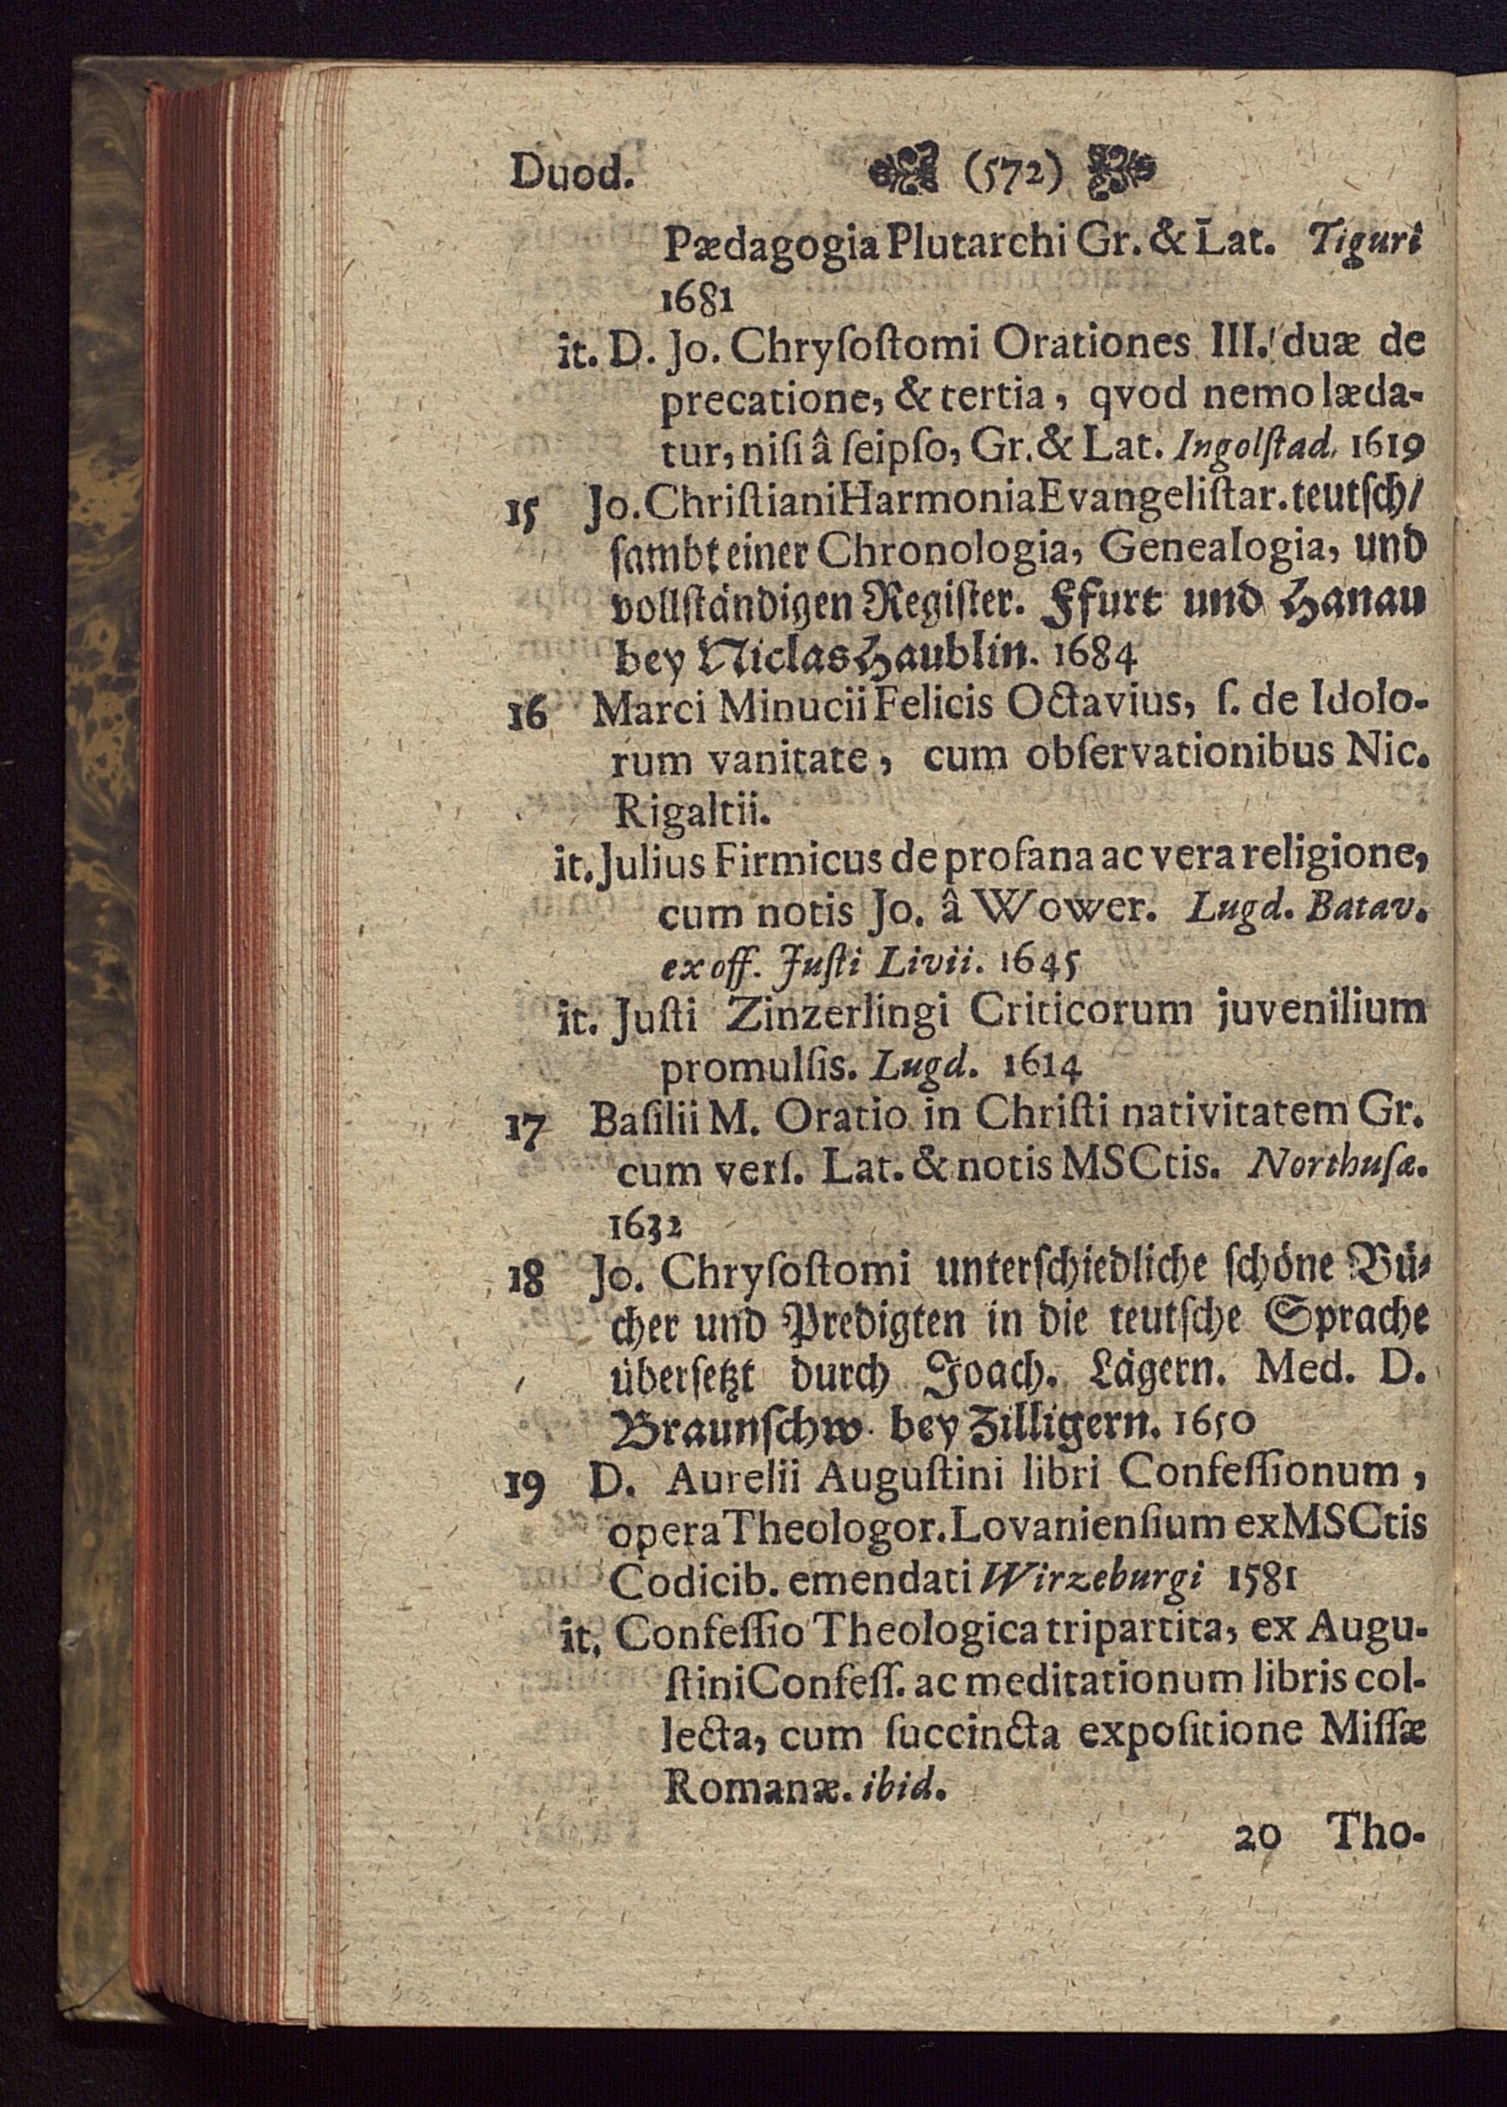 Duod. (572)
Pædagogia Plutarchi Gr. & Lat. Tiguri
1681
it. D. Jo. Chryſoſtomi Orationes III. duæ de
precatione, & tertia, qvod nemo læda-
tur, niſi â ſeipſo, Gr. & Lat. Ingolſtad. 1619
15 Jo. Chriſtiani Harmonia Evangeliſtar. teutſch/
ſambt einer Chronologia, Genealogia, und
vollſtändigen Regiſter. Ffurt und Hanau
bey Niclas Haublin. 1684
16 Marci Minucii Felicis Octavius, ſ. de Idolo-
rum vanitate, cum obſervationibus Nic.
Rigaltii.
it. Julius Firmicus de profana ac vera religione,
cum notis Jo. â Wower. Lugd. Batav.
ex off. Juſti Livii. 1645
it. Juſti Zinzerlingi Criticorum juvenilium
promulſis. Lugd. 1614
17 Baſilii M. Oratio in Chriſti nativitatem Gr.
cum verſ. Lat. & notis MSCtis. Northuſæ.
1632
18 Jo. Chryſoſtomi unterſchiedliche ſchöne Bü-
cher und Predigten in die teutſche Sprache
überſetzt durch Joach. Lägern. Med. D.
Braunſchw. bey Zilligern. 1650
19 D. Aurelii Auguſtini libri Confeſſionum,
opera Theologor. Lovanienſium ex MSCtis
Codicib. emendati Wirzeburgi 1581
it. Confeſſio Theologica tripartita, ex Augu-
ſtini Confeſſ. ac meditationum libris col-
lecta, cum ſuccincta expoſitione Miſſæ
Romanæ. ibid.
20 Tho-